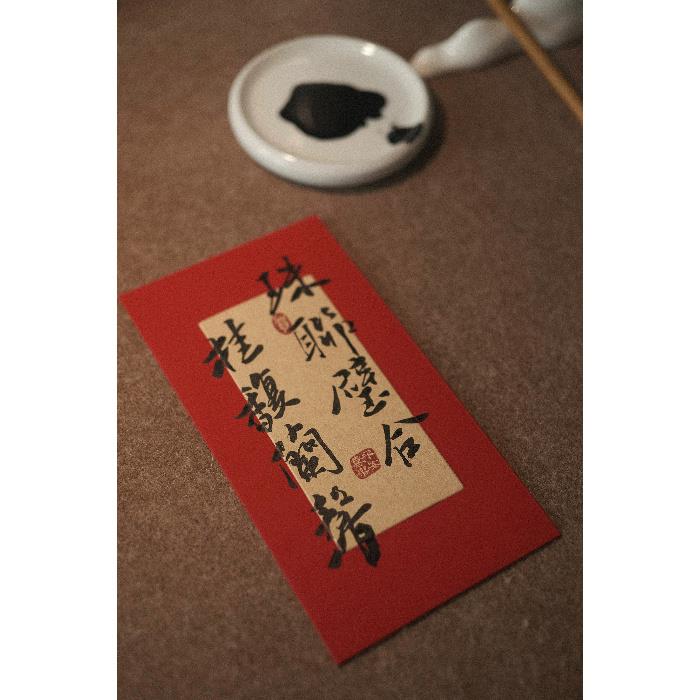 珠聯璧合
桂馥蘭馨